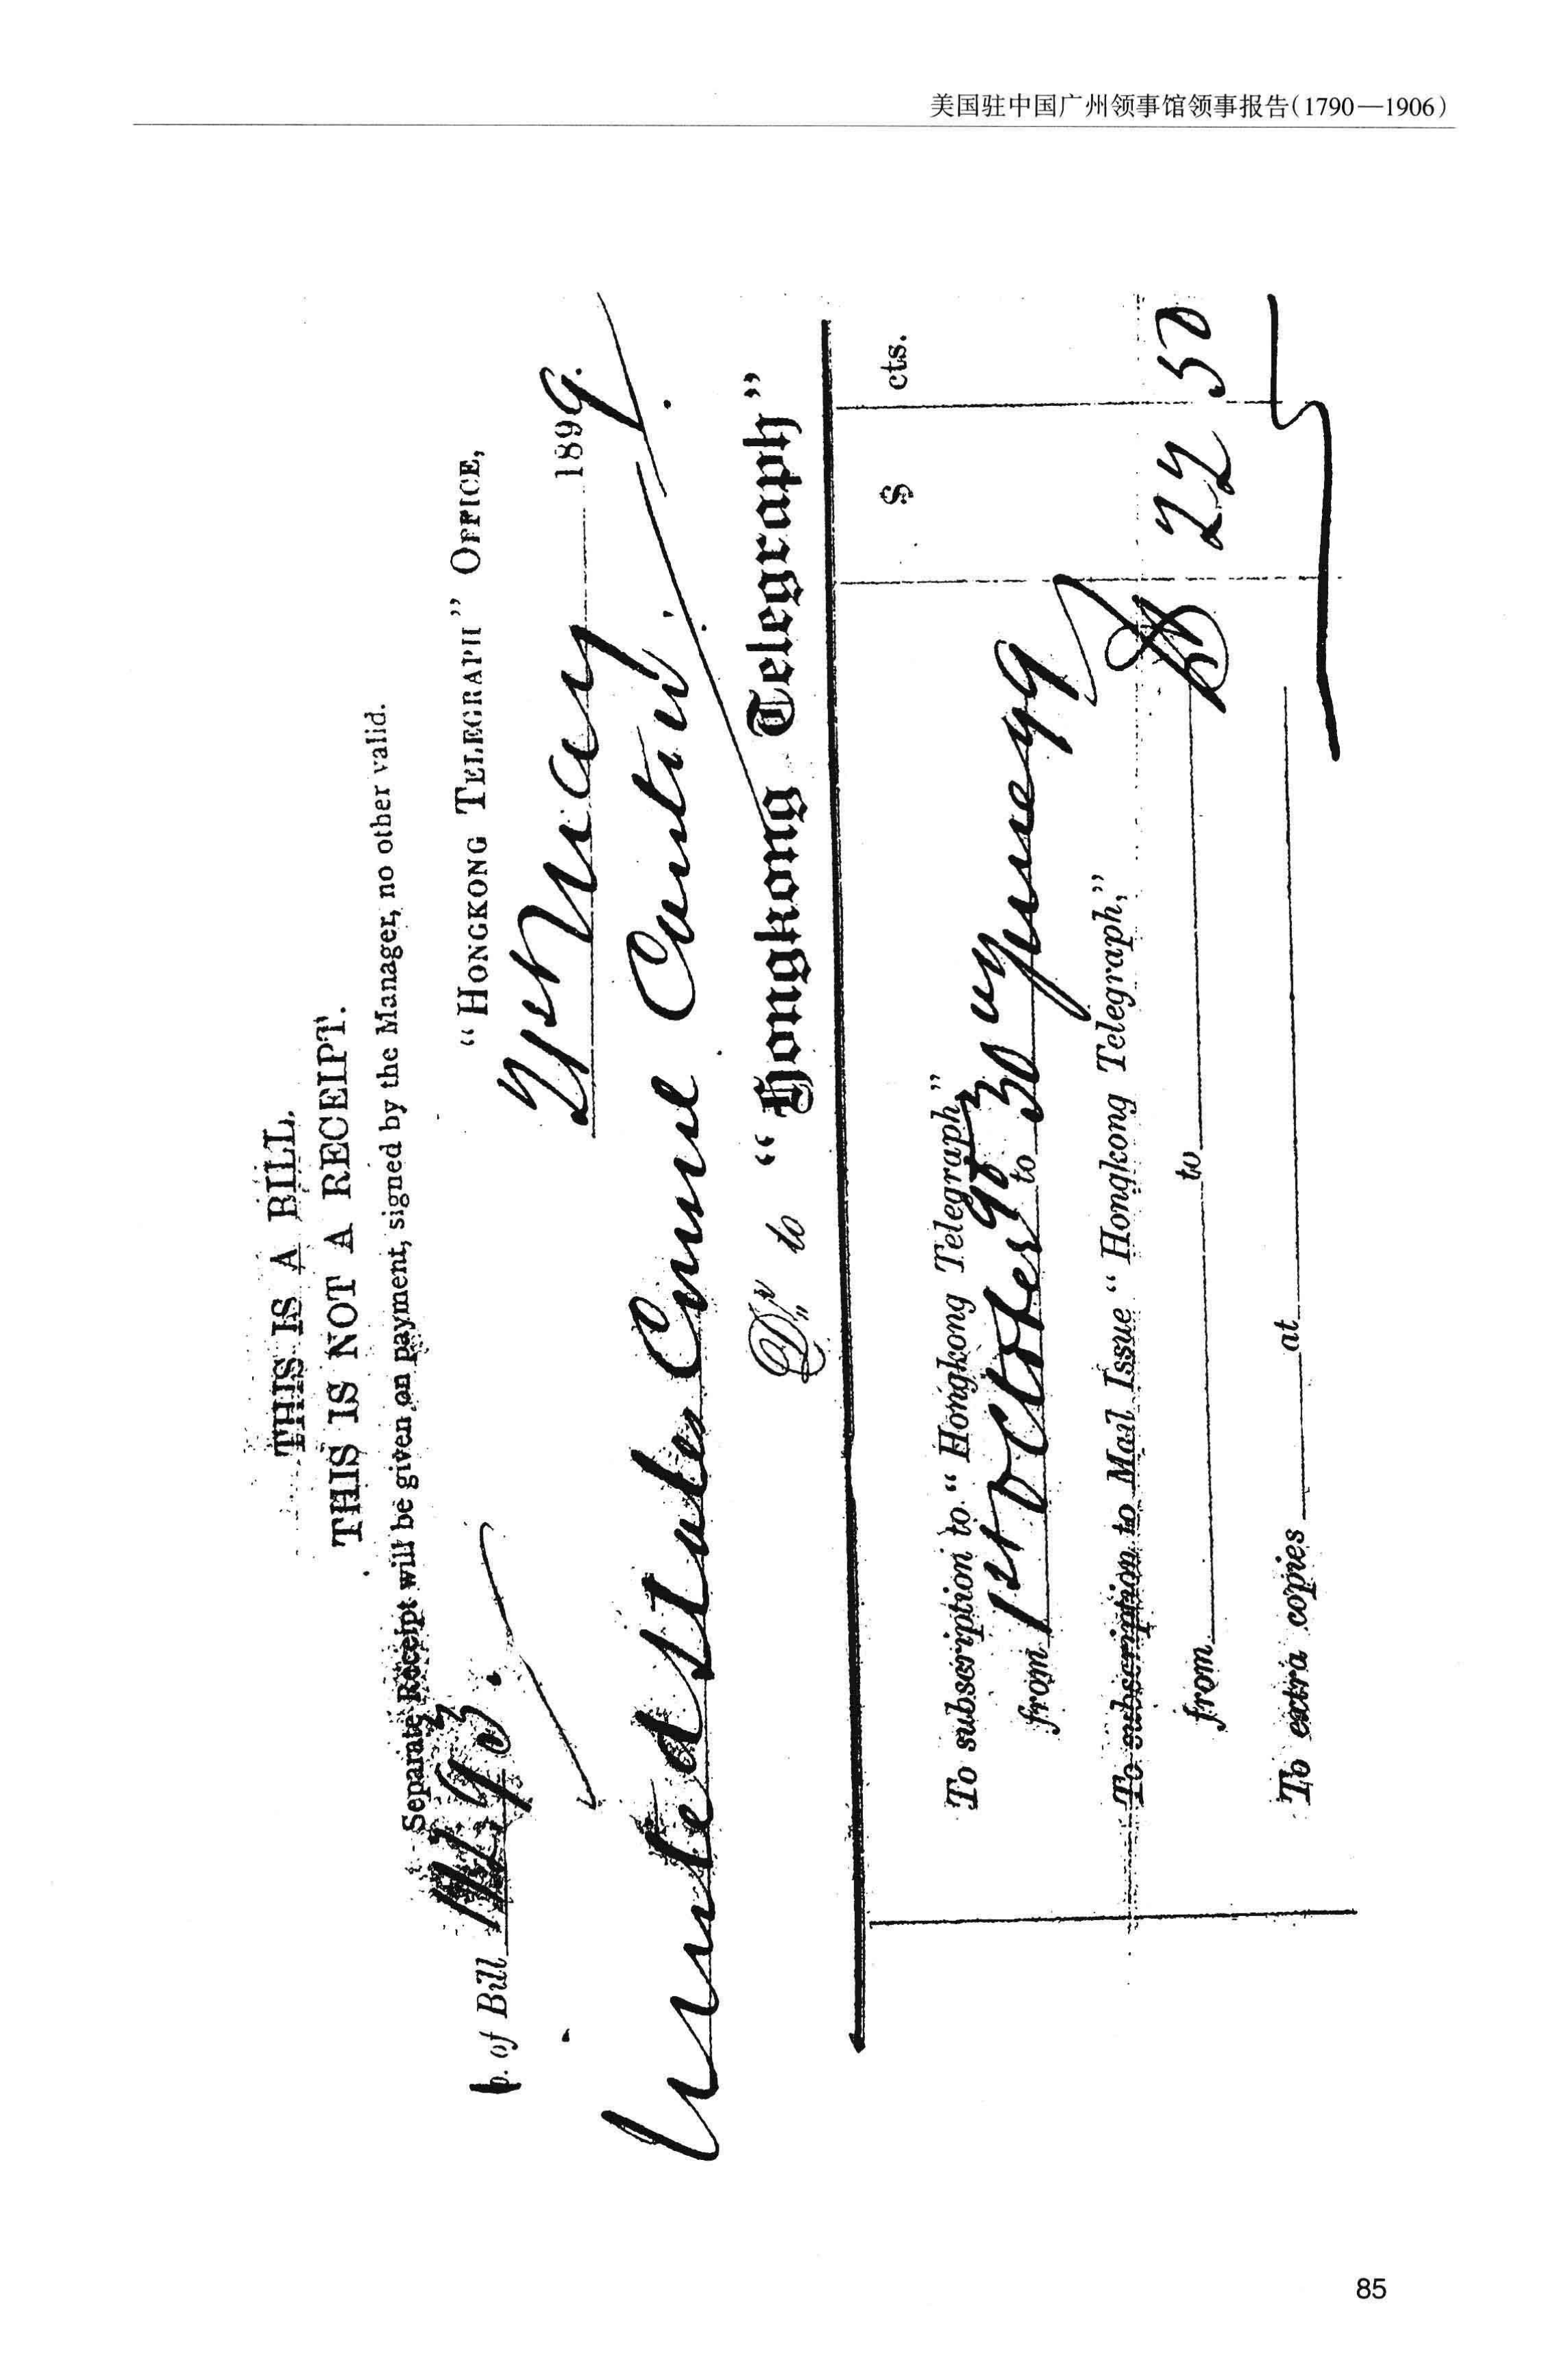 美国驻中国广州领事馆领事报告(1790—1906)
THIS IS A BILL.
THIS IS NOT A RECEIPT.
Separate Receipt will be given on payment, signed by the Manager, no other valid.
of Bill
"HONGKONG TELEGRAPH" OFFICE,
May 1899.
United States Consul Canton
Dr. to "Hongkong Telegraph"
$ cts.
To subscription to "Hongkong Telegraph"
from 1st October 98 to 30 June 99
To subscription to Mail Issue "Hongkong Telegraph,"
from to
$ 22 50
To extra copies at
85